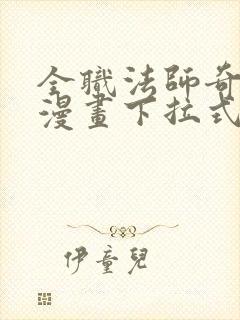 全職法師奇
漫畫下拉式
伊童兒